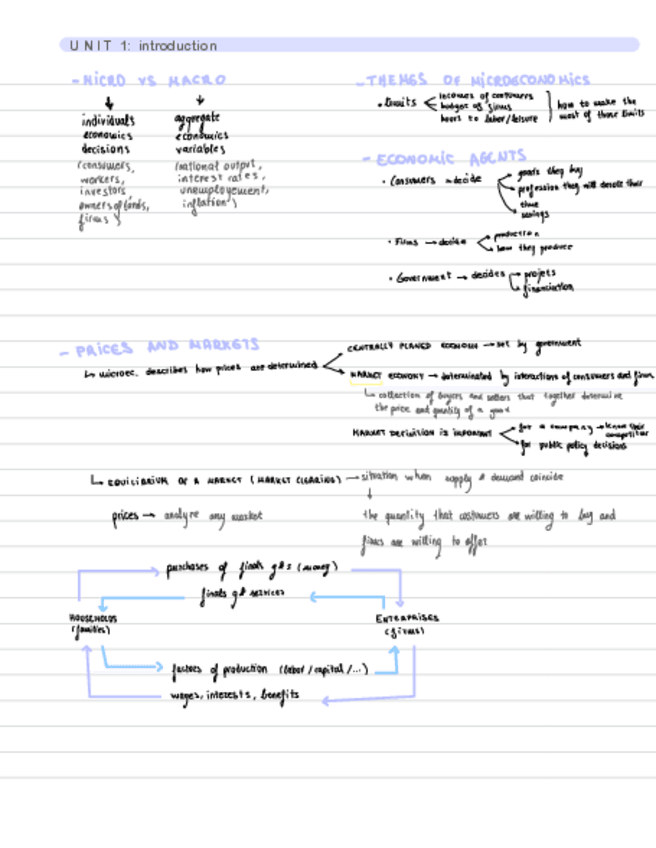 UNIT 1: introduction
- MICRO VS MACRO
individuals
economics
decisions
(consumers,
workers,
investors
owners of lands,
firms)
aggregate
economics
variables
(national output,
interest rates,
unemployement,
inflation)
- THEMES OF MICROECONOMICS
• Limits
incomes of consumers
budget of firms
hours to labor/leisure
how to make the
most of those limits
- ECONOMIC AGENTS
• Consumers → decide
goods they buy
profession they will devote their
time
savings
• Firms → decide
production
how they produce
• Government → decides
projets
financiation
- PRICES AND MARKETS
↳ microec. describes how prices are determined
CENTRALLY PLANED ECONOMY → set by government
MARKET ECONOMY → determinated by interactions of consumers and firms
↳ collection of buyers and sellers that together determine
the price and quantity of a good
MARKET DEFINITION IS IMPORTANT
for a company → know their
competitor
for public policy decisions
↳ EQUILIBRIUM OF A MARKET (MARKET CLEARING) → situation when supply & demand coincide
prices → analyze any market
the quantity that costumers are willing to buy and
firms are willing to offer
purchases of finals g&s (money)
finals g& services
HOUSEHOLDS
(families)
ENTERPRISES
(firms)
factors of production (labor/capital/...)
wages, interests, benefits